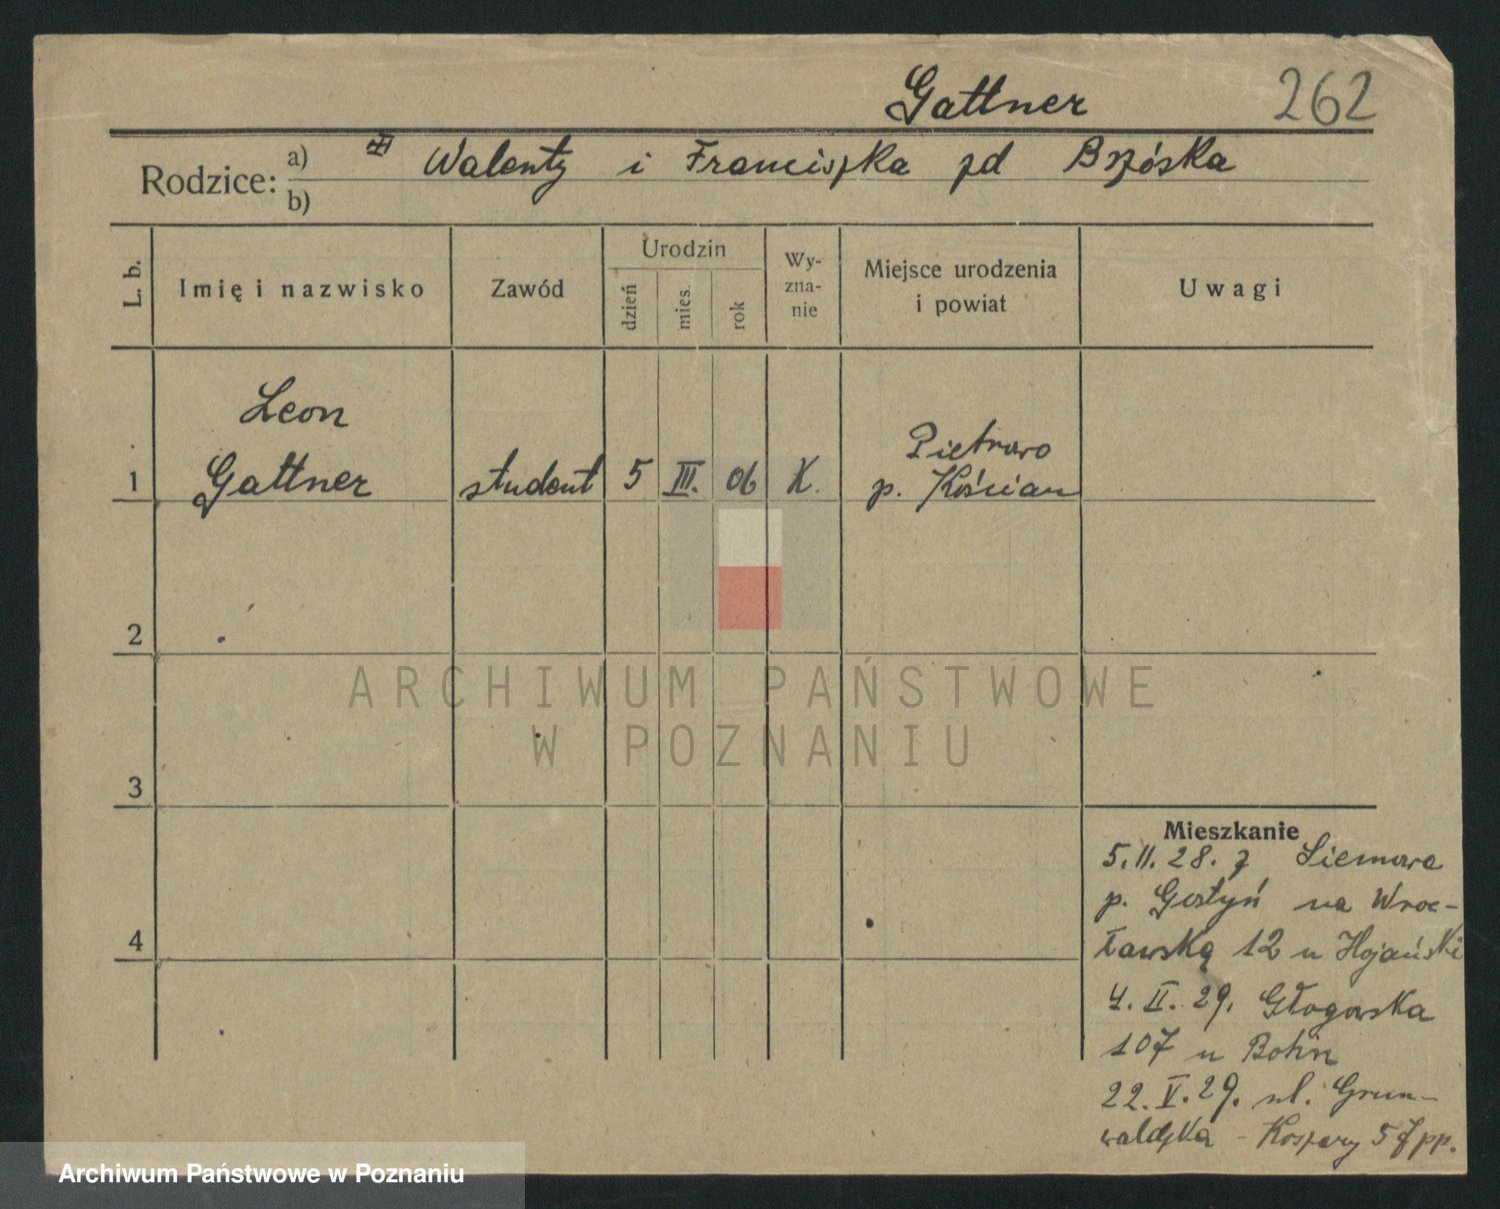 Gattner 262
Rodzice: a) Walenty i Franciszka zd Brzóska
b)
L. b.
Imię i nazwisko
Zawód
Urodzin
dzień
mies.
rok
Wy-
zna-
nie
Miejsce urodzenia
i powiat
Uwagi
Leon
1 Gattner student 5 III. 06 K. Pietrowo
p. Kościan
2
3
4
Mieszkanie
5.II.28. z Siemowa
p. Gostyń na Wroc-
ławską 12 u Hojański
4.II.29. Głogowska
107 u Bohn
22.V.29. ul. Grun-
waldzka - Koszary 57 pp.
ARCHIWUM PAŃSTWOWE
W POZNANIU
Archiwum Państwowe w Poznaniu